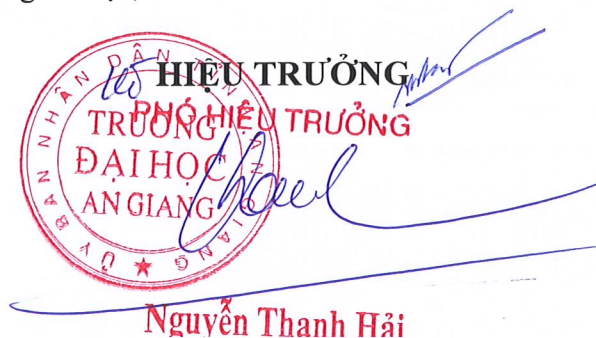 HIỆU TRƯỞNG
PHÓ HIỆU TRƯỞNG
ỦY BAN NHÂN DÂN TỈNH AN GIANG
TRƯỜNG
ĐẠI HỌC
AN GIANG
Nguyễn Thanh Hải